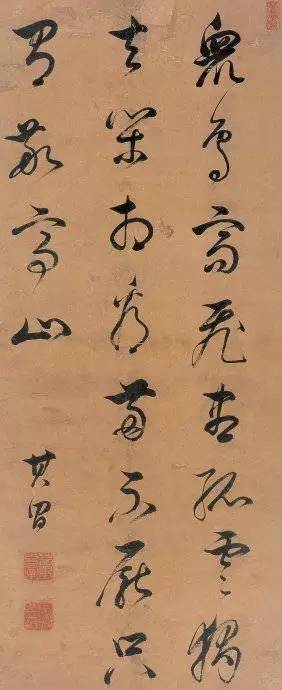 眾鳥高飛盡孤雲獨
去閑相看兩不厭只
有敬亭山
其昌